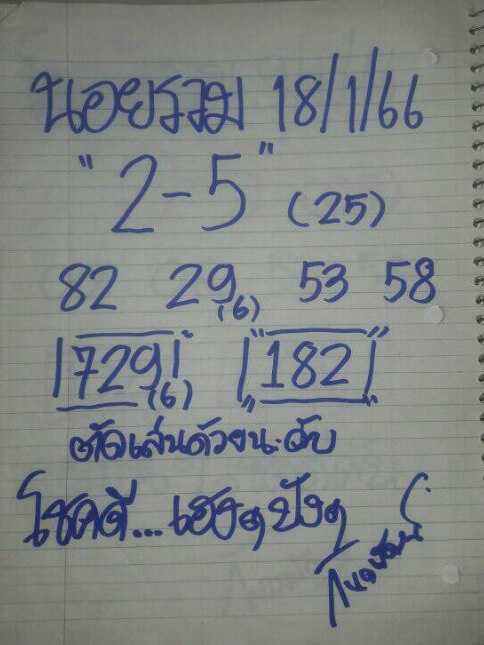 นอยรวม 18/1/66
"2-5" (25)
82 29 53 58
(6)
729 "182"
(6)
ตัดเส่นด้วยนะอับ
โชคดี... เฮงๆปังๆ